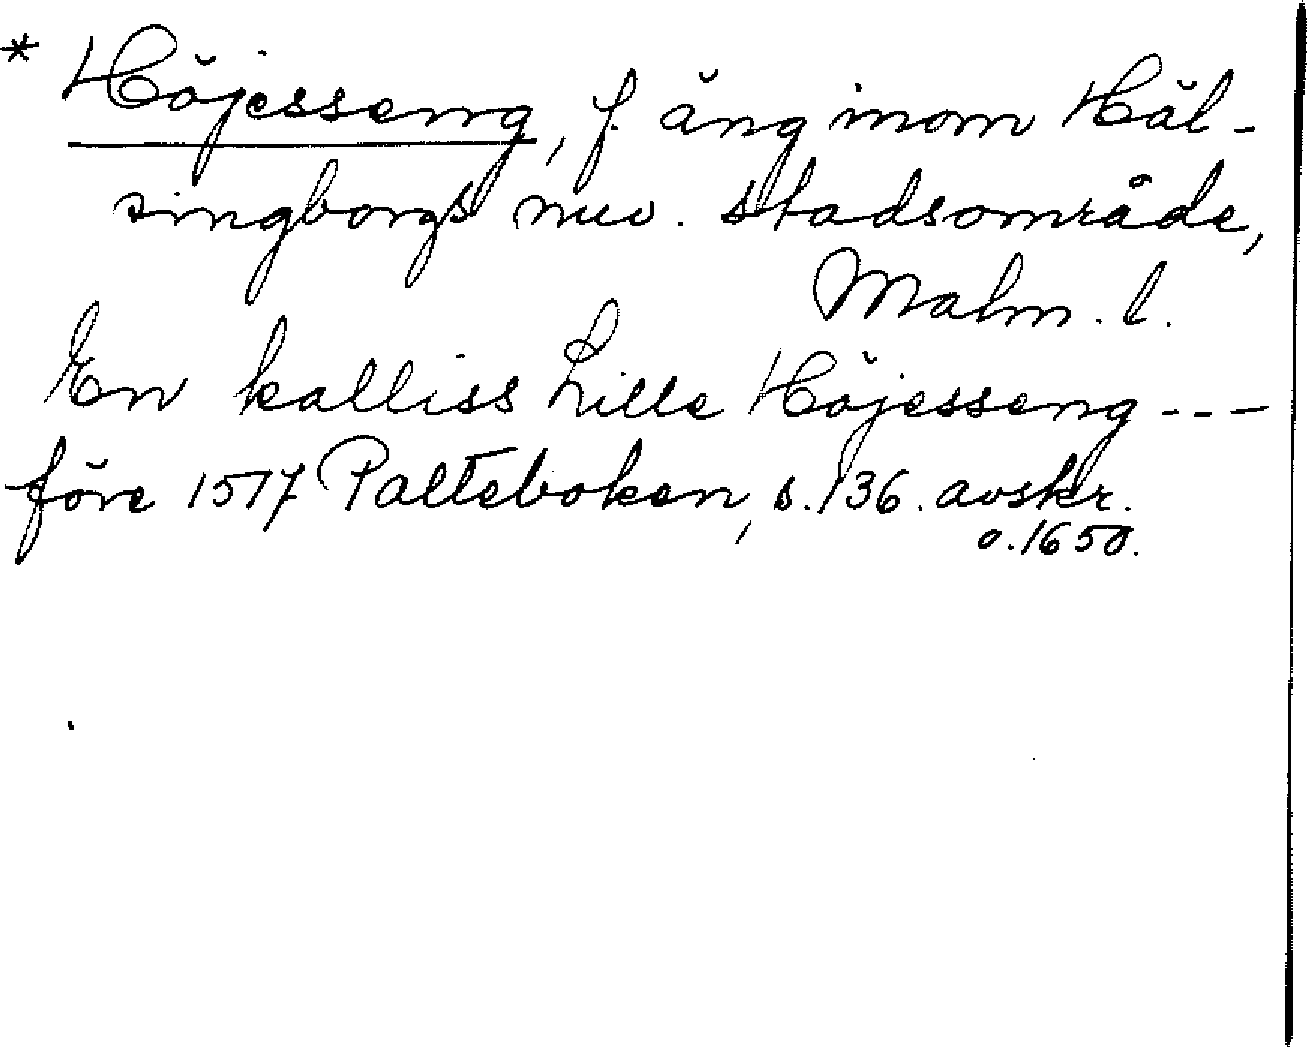 * Höjesseng, f. äng inom Häl-
singborgs nuv. stadsområde,
Malm. l.
En kalliss Lille Höjesseng ---
före 1517 Palteboken, s. 136. avskr.
o. 1650.